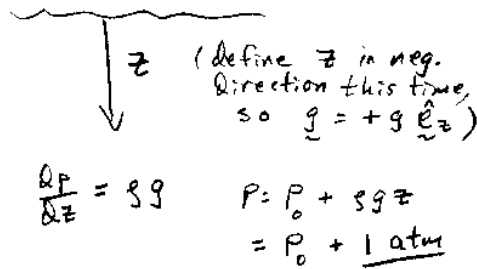 z (define z in neg.
Direction this time,
so g = +g ê_z)
∂p/∂z = ρg P = P₀ + ρgz
= P₀ + 1 atm